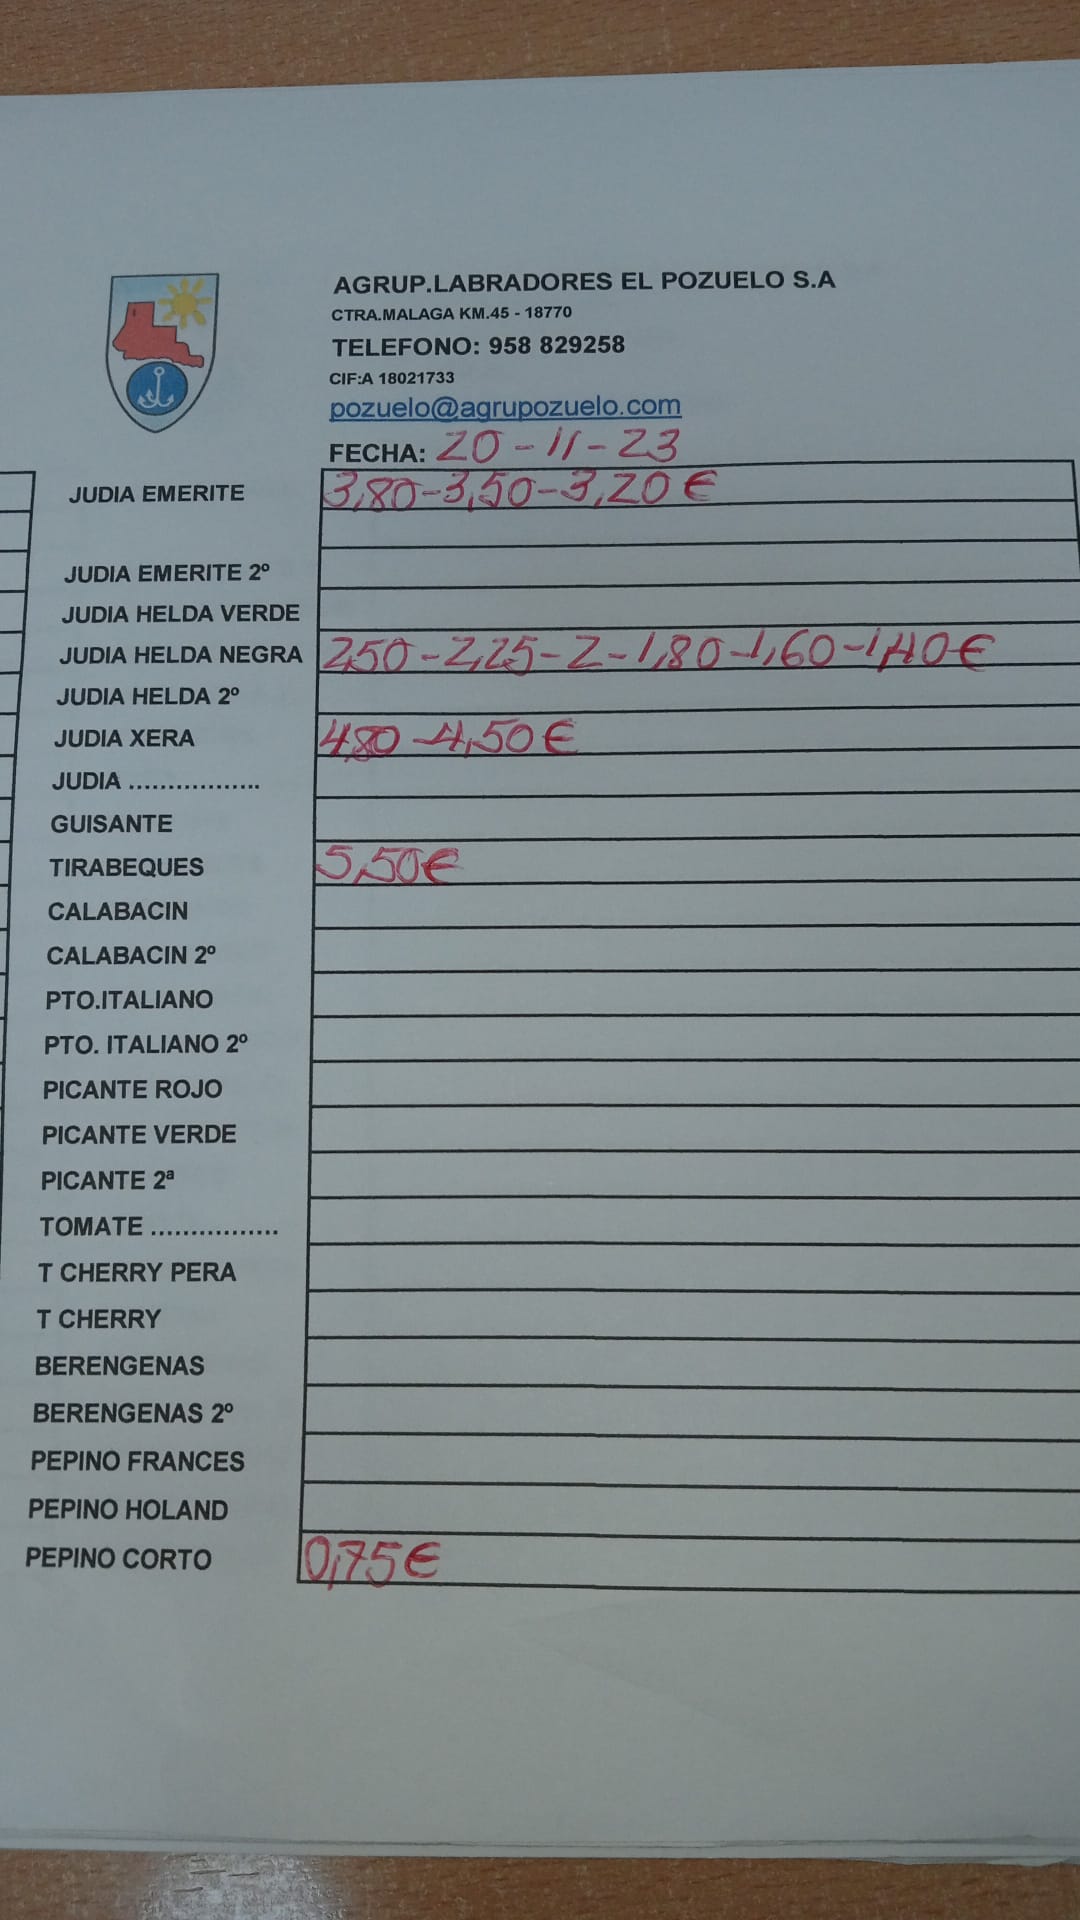 AGRUP.LABRADORES EL POZUELO S.A
CTRA.MALAGA KM.45 - 18770
TELEFONO: 958 829258
CIF:A 18021733
pozuelo@agrupozuelo.com
FECHA: 20-11-23
JUDIA EMERITE 3,80-3,50-3,20€
JUDIA EMERITE 2º
JUDIA HELDA VERDE
JUDIA HELDA NEGRA 2,50-2,25-2-1,80-1,60-1,40€
JUDIA HELDA 2º
JUDIA XERA 4,80-4,50€
JUDIA .................
GUISANTE
TIRABEQUES 5,50€
CALABACIN
CALABACIN 2º
PTO.ITALIANO
PTO. ITALIANO 2º
PICANTE ROJO
PICANTE VERDE
PICANTE 2ª
TOMATE ................
T CHERRY PERA
T CHERRY
BERENGENAS
BERENGENAS 2º
PEPINO FRANCES
PEPINO HOLAND
PEPINO CORTO 0,75€